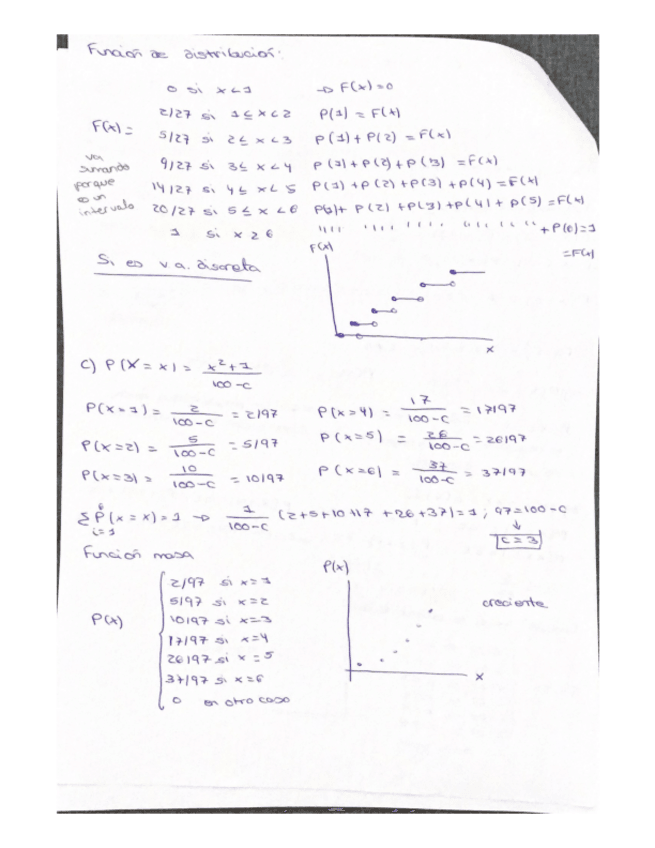 Función de distribución:
0 si x<1 → F(x)=0
2/27 si 1≤x<2 P(1) = F(x)
F(x)= 5/27 si 2≤x<3 P(1)+P(2) = F(x)
va sumando porque es un intervalo
9/27 si 3≤x<4 P(1)+P(2)+P(3) = F(x)
14/27 si 4≤x<5 P(1)+P(2)+P(3)+P(4) = F(x)
20/27 si 5≤x<6 P(1)+P(2)+P(3)+P(4)+P(5) = F(x)
1 si x≥6 '''' '''' '''' '''' + P(6)=1
=F(x)
F(x)
Si es v.a. discreta
x
c) P(X=x) = x²+1 / 100-c
P(x=1) = 2/100-c = 2/97 P(x=4) = 17/100-c = 17/97
P(x=2) = 5/100-c = 5/97 P(x=5) = 26/100-c = 26/97
P(x=3) = 10/100-c = 10/97 P(x=6) = 37/100-c = 37/97
6 Σ i=1 P(x=x)=1 → 1/100-c (2+5+10+17+26+37)=1; 97=100-c
↓
c=3
Función masa
P(x)
2/97 si x=1
5/97 si x=2
10/97 si x=3
P(x) 17/97 si x=4
26/97 si x=5
37/97 si x=6
0 en otro caso
creciente
x